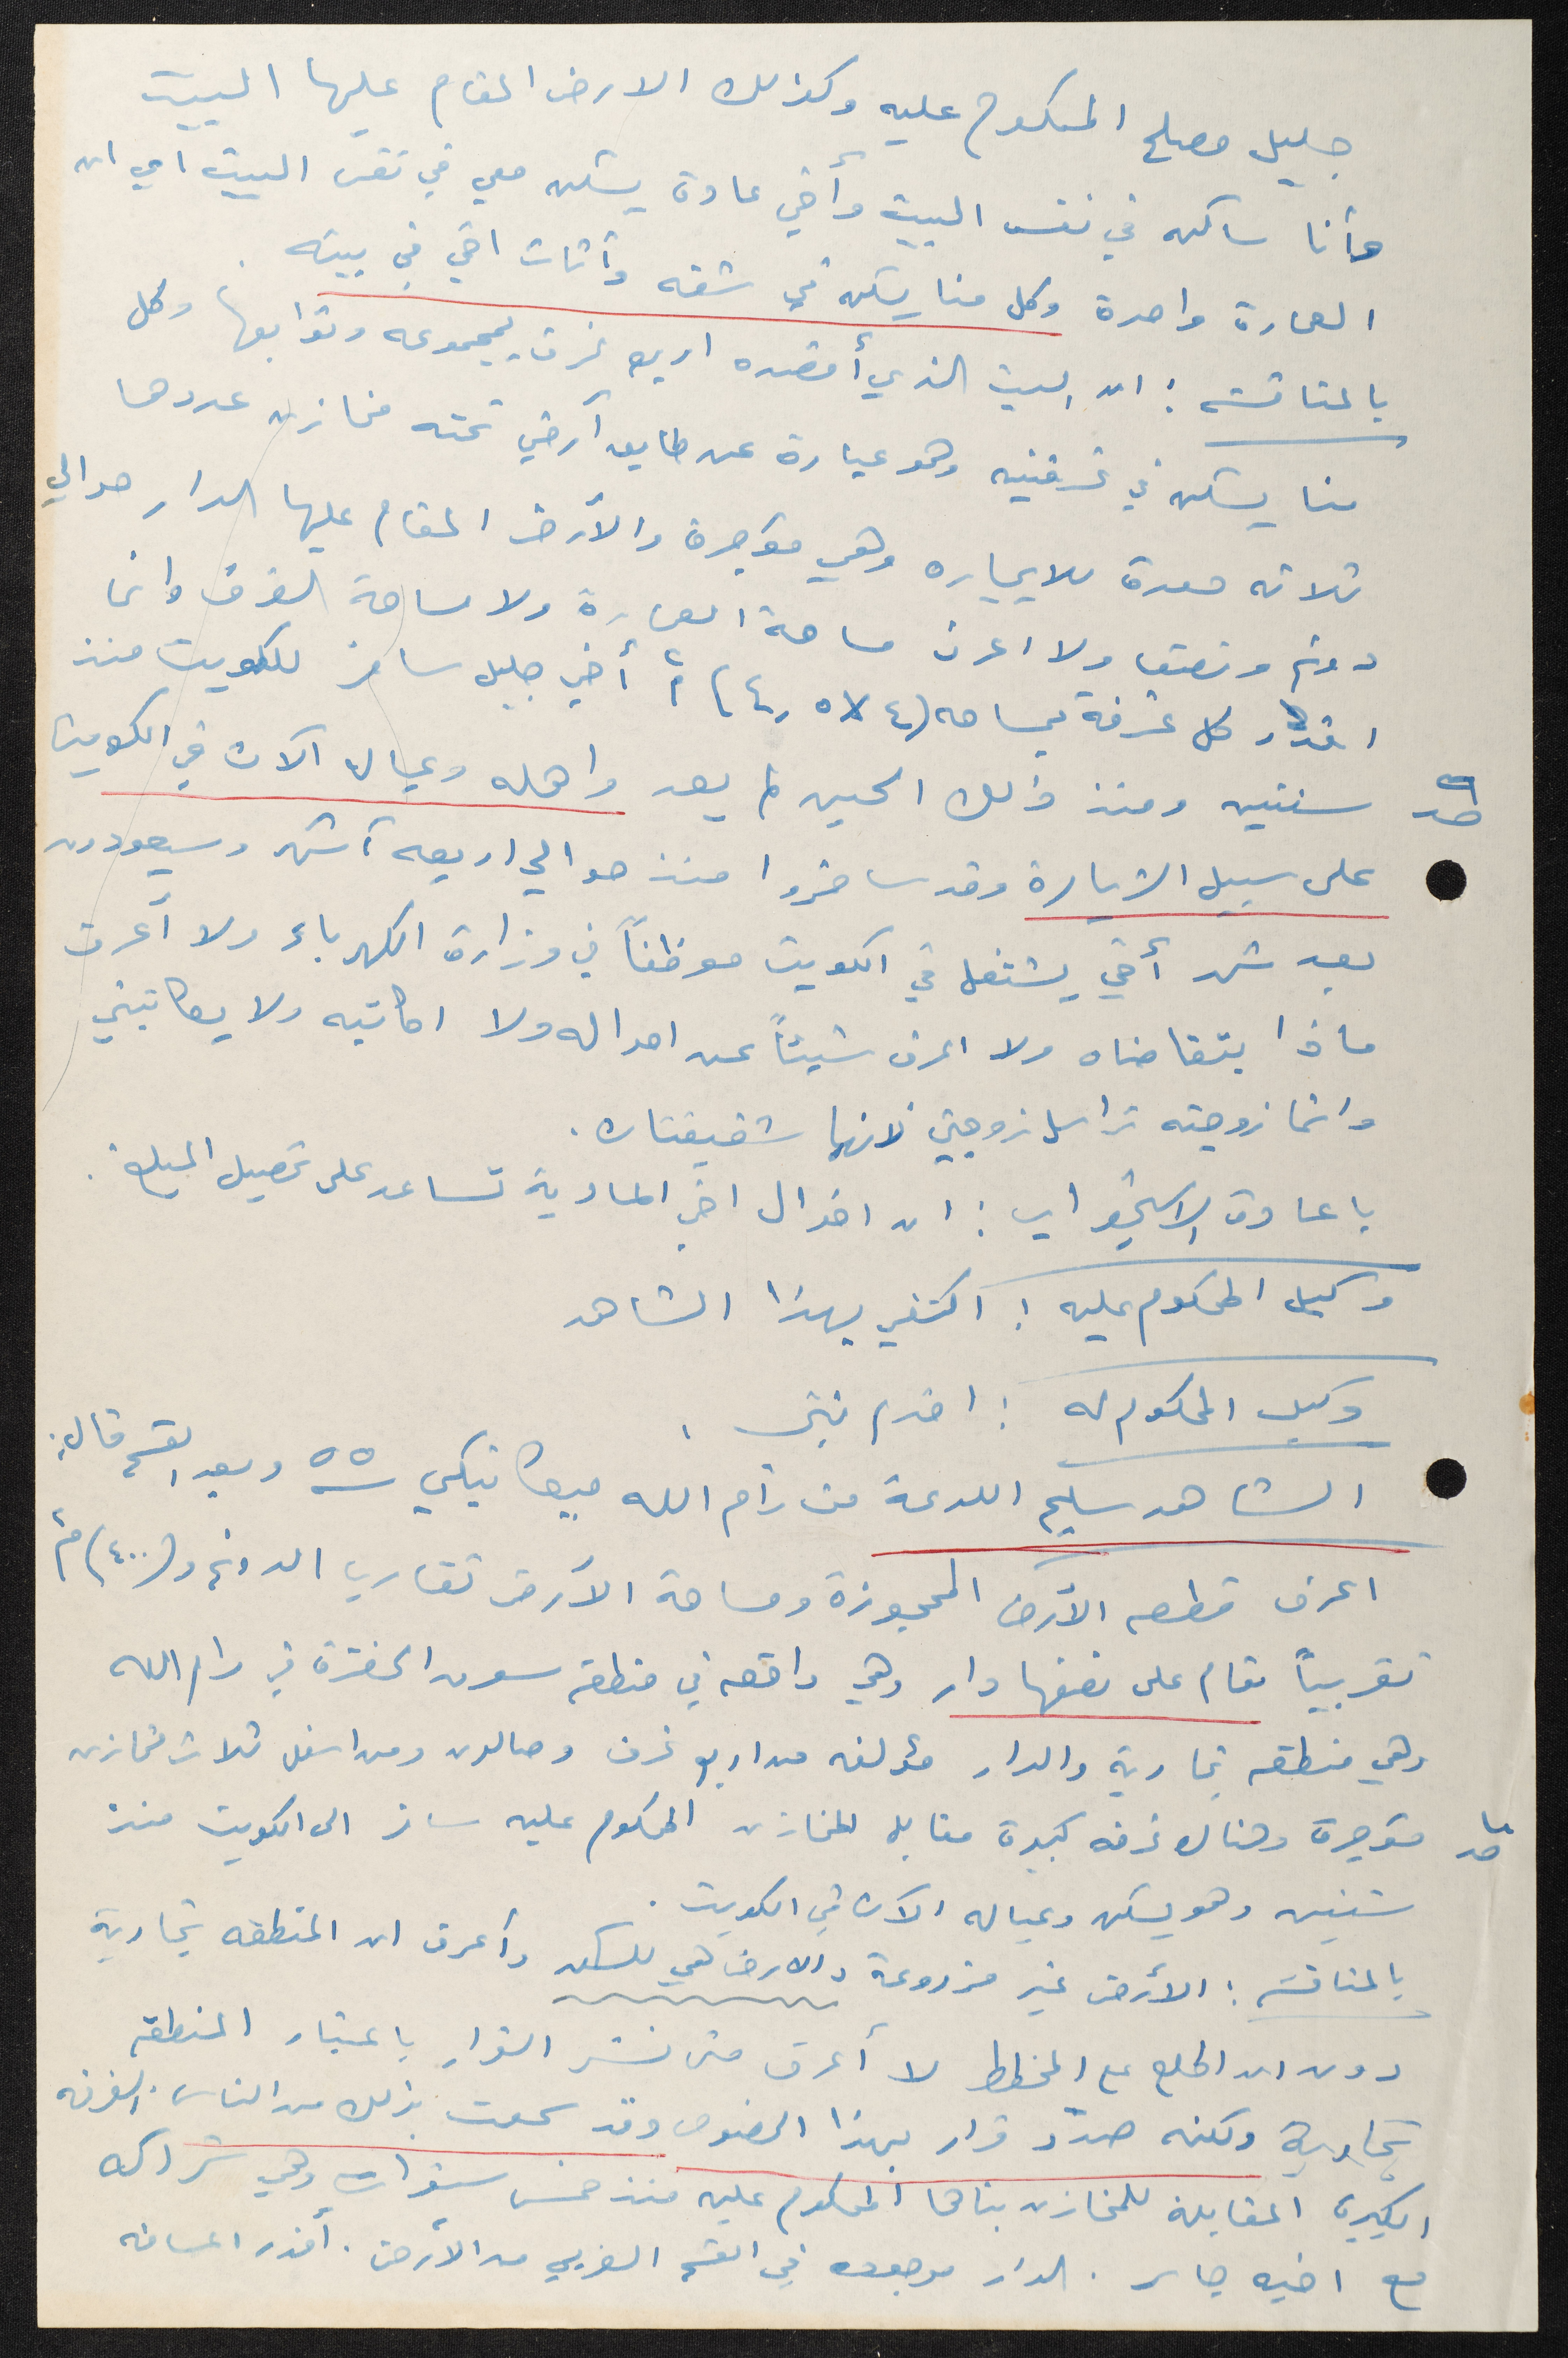 جليل مصلح المحكوم عليه وكذلك الارض المقام عليها البيت
وأنا ساكن في نفس البيت وأخي عادة يسكن معي في نفس البيت اي ان
العمارة واحدة وكل منا يسكن في شقه وأثاث اخي في بيته .
بالمناقشه : ان البيت الذي أقصده اربع غرف بمجموعه وتوابعها وكل
منا يسكن في غرفتين وهو عبارة عن طابق أرضي تحته مخازن عددها
ثلاثه معدة للايجاره وهي مؤجرة والأرض المقام عليها الدار حوالي
دونم ونصف ولا اعرف مساحة العمارة ولا مساحة الغرف وانما
اقدر كل غرفة بمساحه (٤ x ٥ر٤) م٢ أخي جليل سافر للكويت منذ
سنتين ومنذ ذلك الحين لم يعد واهله وعياله الآن في الكويت
على سبيل الزيارة وقد سافروا منذ حوالي اربعه أشهر وسيعودون
بعد شهر أخي يشتغل في الكويت موظفاً في وزارة الكهرباء ولا أعرف
ماذا يتقاضاه ولا اعرف شيئاً عن احواله ولا اكاتبه ولا يكاتبني
وانما زوجته تراسل زوجتي لانهما شقيقتان .
باعادة الاستجواب : ان احوال اخي المادية تساعد على تحصيل المبلغ .
وكيل المحكوم عليه : اكتفي بهذا الشاهد
وكيل المحكوم له : اقدم بينتي .
الشاهد سليم اللدعة من رام الله ميكانيكي ٥٥ سنه وبعد القسم قال :
اعرف قطعه الأرض المحجوزة ومساحة الأرض تقارب الدونم و(٤٠٠) م٢
تقريباً مقام على نصفها دار وهي واقعه في منطقه سوق الخضرة في رام الله
وهي منطقه تجارية والدار مؤلفه من اربع غرف وصالون ومن اسفل ثلاث مخازن
مؤجرة وهناك غرفه كبيرة مقابله للمخازن المحكوم عليه سافر الى الكويت منذ
سنتين وهو يسكن وعياله الآن في الكويت .
بالمناقشه : الأرض غير مزروعة والارض هي للسكن وأعرف ان المنطقه تجارية
دون ان اطلع على المخطط لا أعرف متى نشر القرار باعتبار المنطقه
تجارية ولكنه صدر قرار بهذا الخصوص وقد سمعت بذلك من الناس . الغرفه
الكبيرة المقابلة للمخازن بناها المحكوم عليه منذ خمس سنوات وهي شراكه
مع اخيه جابر . الدار موجوده في القسم الغربي من الأرض . أقدر المسافه